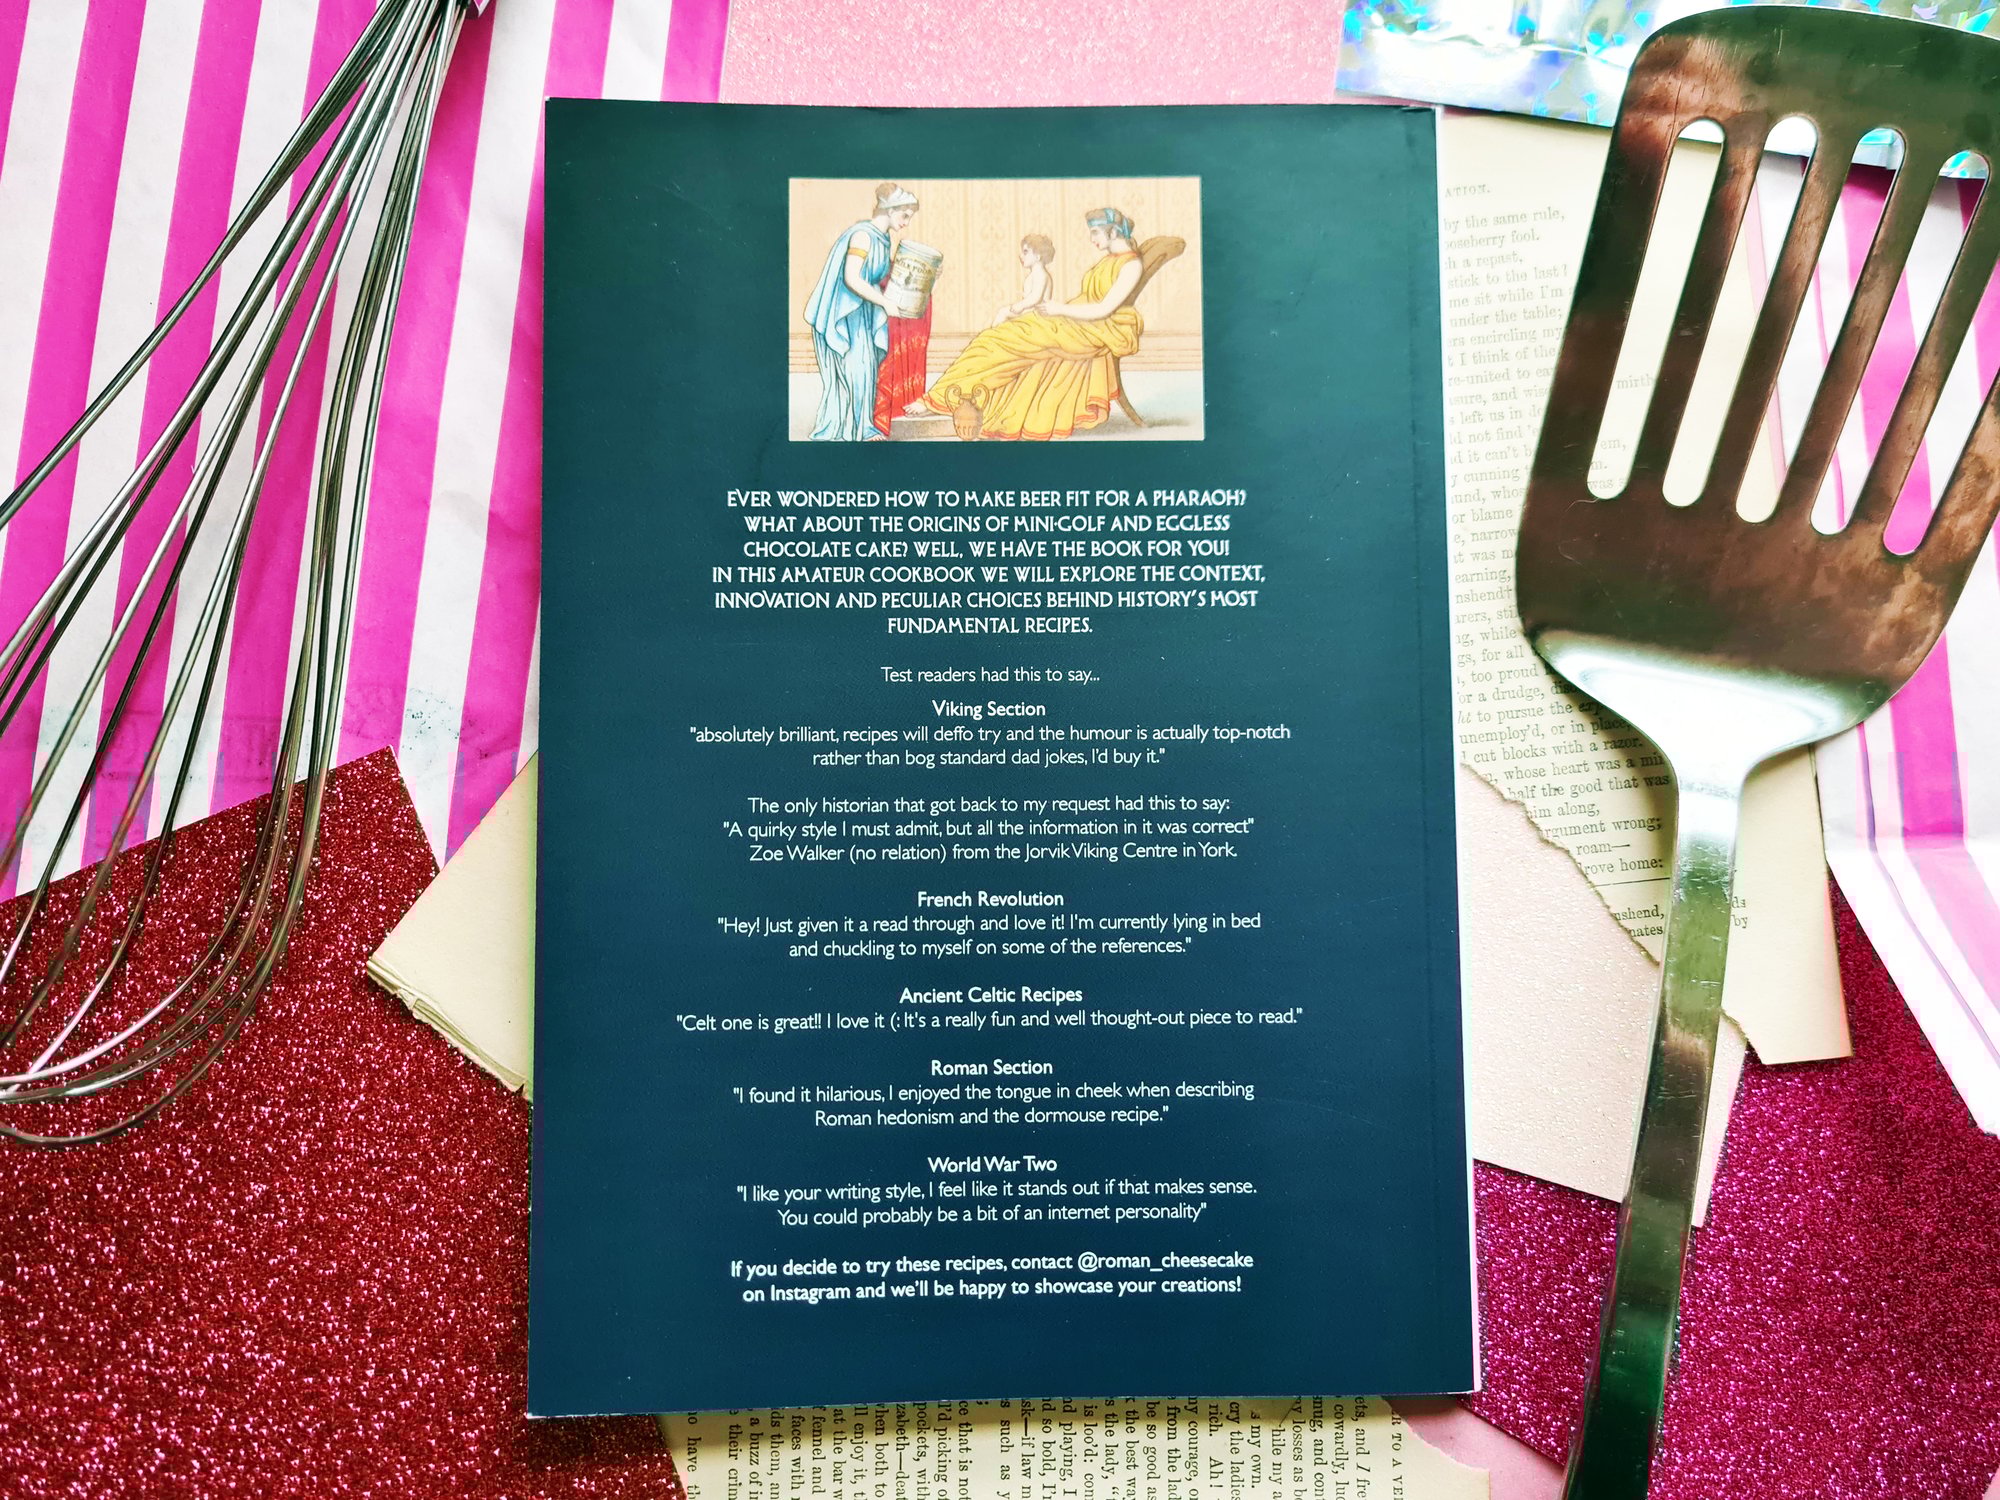 EVER WONDERED HOW TO MAKE BEER FIT FOR A PHARAOH?
WHAT ABOUT THE ORIGINS OF MINI-GOLF AND EGGLESS
CHOCOLATE CAKE? WELL, WE HAVE THE BOOK FOR YOU!
IN THIS AMATEUR COOKBOOK WE WILL EXPLORE THE CONTEXT,
INNOVATION AND PECULIAR CHOICES BEHIND HISTORY'S MOST
FUNDAMENTAL RECIPES.
Test readers had this to say...
Viking Section
"absolutely brilliant, recipes will deffo try and the humour is actually top-notch
rather than bog standard dad jokes, I'd buy it."
The only historian that got back to my request had this to say:
"A quirky style I must admit, but all the information in it was correct"
Zoe Walker (no relation) from the Jorvik Viking Centre in York.
French Revolution
"Hey! Just given it a read through and love it! I'm currently lying in bed
and chuckling to myself on some of the references."
Ancient Celtic Recipes
"Celt one is great!! I love it (: It's a really fun and well thought-out piece to read."
Roman Section
"I found it hilarious, I enjoyed the tongue in cheek when describing
Roman hedonism and the dormouse recipe."
World War Two
"I like your writing style, I feel like it stands out if that makes sense.
You could probably be a bit of an internet personality"
If you decide to try these recipes, contact @roman_cheesecake
on Instagram and we'll be happy to showcase your creations!
by the same rule,
h a repast,
stick to the last!
me sit while I'm
under the table;
encircling my
I think of the
left us in
cunning
or blame
while
for all
too proud
or a drudge,
to pursue the
unemploy'd, or in place,
cut blocks with a razor.
whose heart was a
half the good that was
him along,
argument wrong;
roam—
drove home:
by